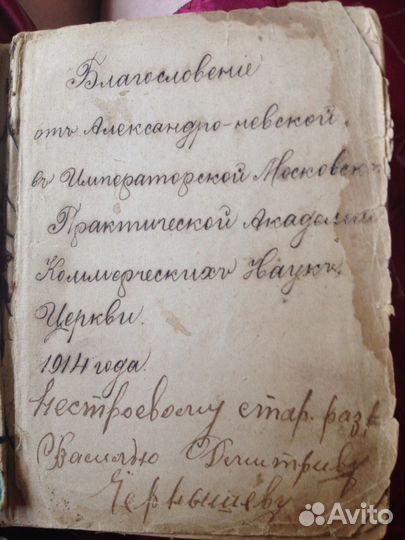 Благословеніе
отъ Александро-невской,
въ Императорской Московск
Практической Академіи
Коммерческихъ Наукъ,
Церкви.
1914 года.
Нестроевому стар. раз.
Василью Дмитриву
Чернышеву
Avito